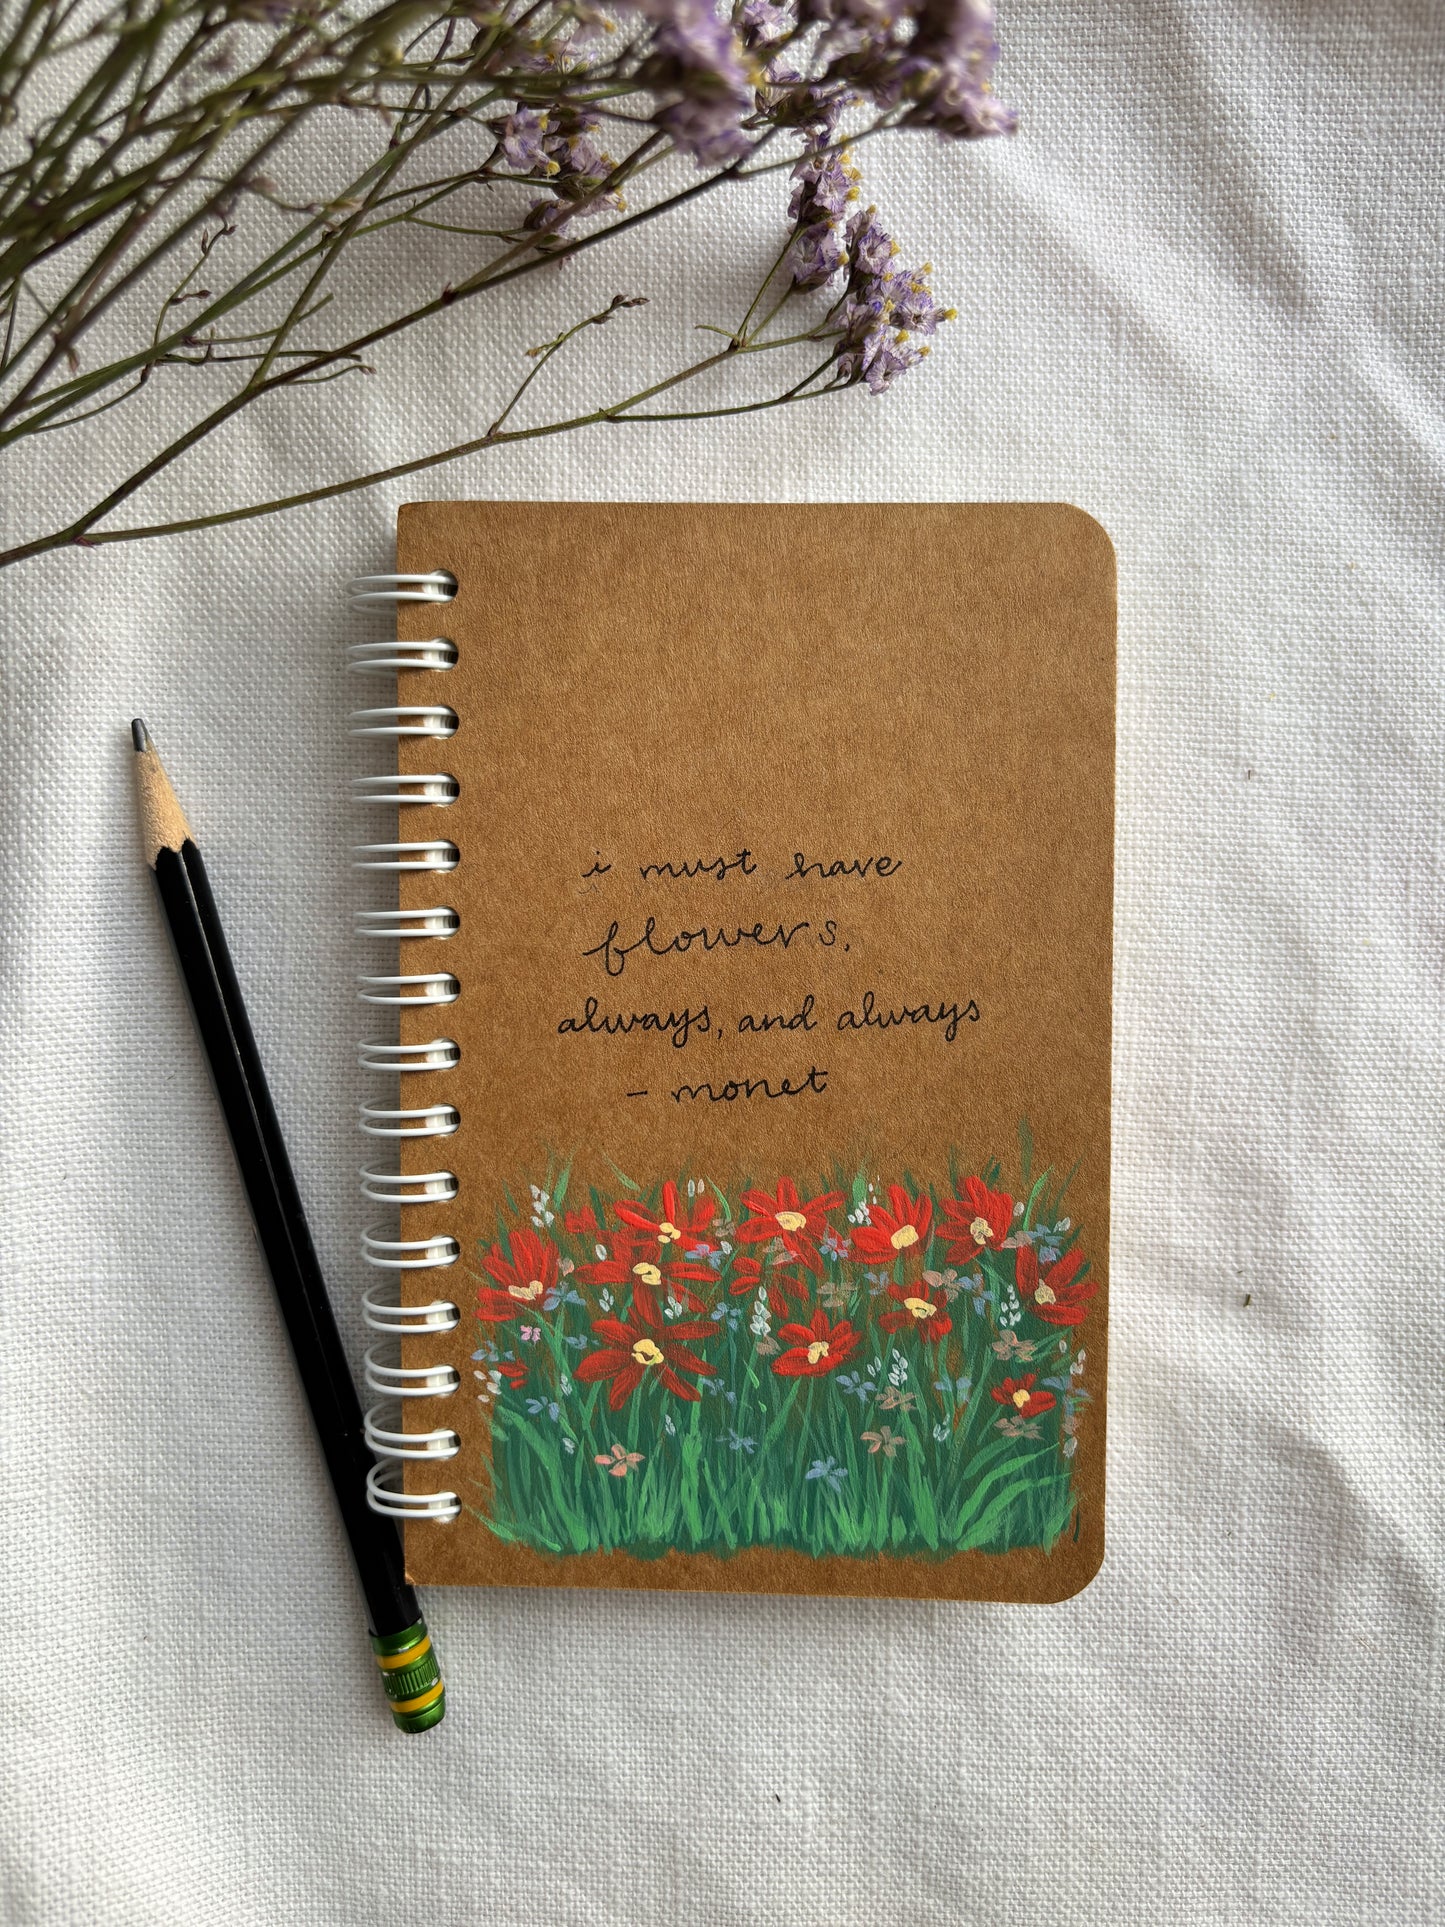 i must have
flowers,
always, and always
- monet